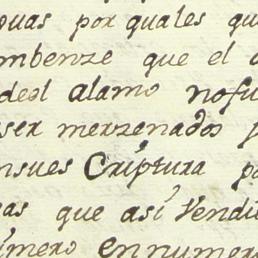 ouas por quales qu
mbenze que el
deel alamo nofu
ser merzenados p
nsues Criptura po
as que así Vendi
imero en numero